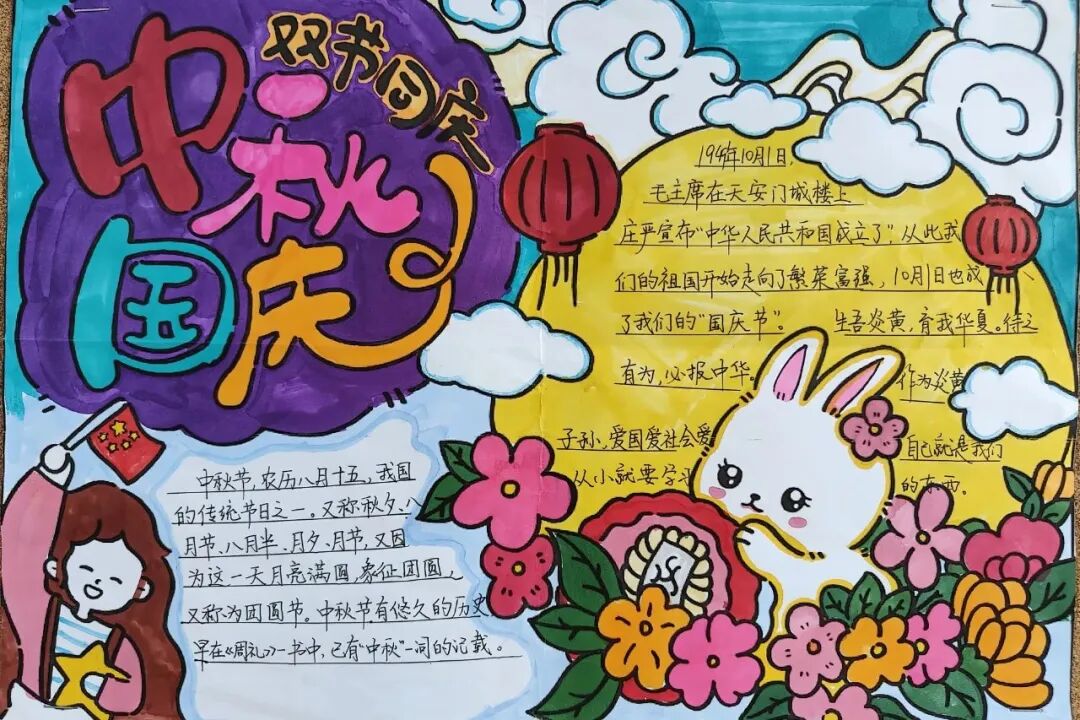 双节同庆
中秋
国庆
1949年10月1日,
毛主席在天安门城楼上
庄严宣布"中华人民共和国成立了",从此我
们的祖国开始走向了繁荣富强,10月1日也成
了我们的"国庆节"。 生吾炎黄,育我华夏。待之
有为,必报中华。 作为炎黄
子孙、爱国爱社会爱 自己就是我们
从小就要学 的东西。
中秋节,农历八月十五,我国
的传统节日之一。又称秋夕、八
月节、八月半、月夕、月节,又因
为这一天月亮满圆,象征团圆,
又称为团圆节。中秋节有悠久的历史
早在《周礼》一书中,已有"中秋"一词的记载。